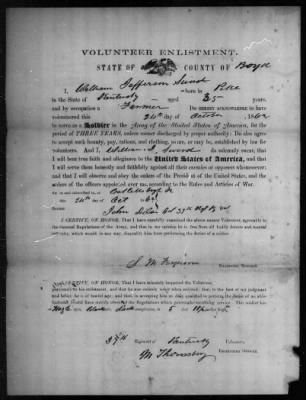 VOLUNTEER ENLISTMENT.
STATE OF COUNTY OF Boyd
I, William Jefferson born in Pike
in the State of Kentucky aged 35 years,
and by occupation a Farmer Do hereby acknowledge to have
volunteered this 24th day of October 1862
to serve as a Soldier in the Army of the United States of America, for the
period of THREE YEARS, unless sooner discharged by proper authority: Do also agree
to accept such bounty, pay, rations, and clothing, as are, or may be, established by law for
volunteers. And I, William J. do solemnly swear, that
I will bear true faith and allegiance to the United States of America, and that
I will serve them honestly and faithfully against all their enemies or opposers whomsoever; and
that I will observe and obey the orders of the President of the United States, and the
orders of the officers appointed over me, according to the Rules and Articles of War.
Sworn and subscribed to, at
this 24th day of Oct 1862
John
I CERTIFY, ON HONOR, That I have carefully examined the above named Volunteer, agreeably to
the General Regulations of the Army, and that in my opinion he is free from all bodily defects and mental
infirmity, which would in any way, disqualify him from performing the duties of a soldier.
S. M. Ferguson
Examining Surgeon.
I CERTIFY, ON HONOR, That I have minutely inspected the Volunteer,
previously to his enlistment, and that he was entirely sober when enlisted; that, to the best of my judgment
and belief, he is of lawful age; and that, in accepting him as duly qualified to perform the duties of an able-
bodied soldier, I have strictly observed the Regulations which govern the recruiting service. This soldier has
Black complexion, is 5 feet high.
39th Regiment of Kentucky Volunteers,
Recruiting Officer.